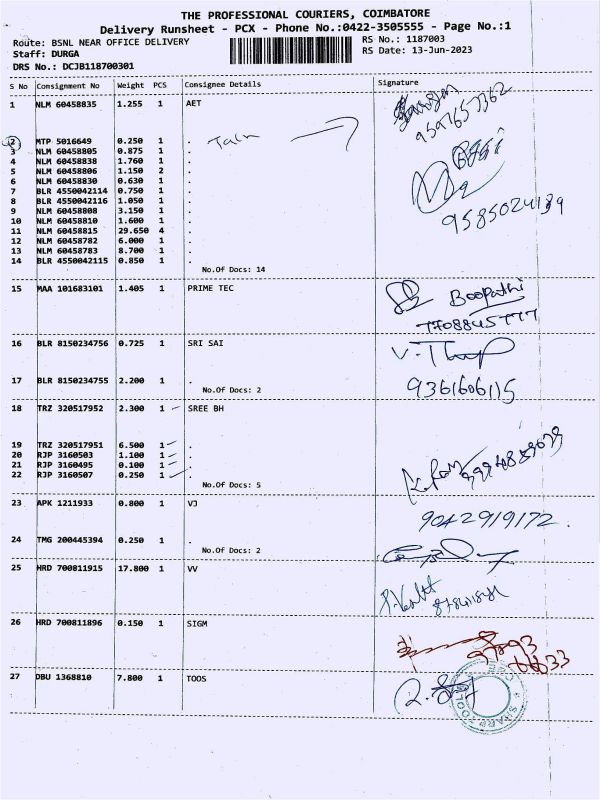 THE PROFESSIONAL COURIERS, COIMBATORE
Delivery Runsheet - PCX - Phone No.:0422-3505555 - Page No.:1
Route: BSNL NEAR OFFICE DELIVERY
RS No.: 1187003
Staff: DURGA
RS Date: 13-Jun-2023
DRS No.: DCJB118700301
S No Consignment No Weight PCS Consignee Details Signature
1 NLM 60458835 1.255 1 AET
2 MTP 5016649 0.250 1 .
3 NLM 60458805 0.875 1 .
4 NLM 60458838 1.760 1 .
5 NLM 60458806 1.150 2 .
6 NLM 60458830 0.630 1 .
7 BLR 4550042114 0.750 1 .
8 BLR 4550042116 1.050 1 .
9 NLM 60458808 3.150 1 .
10 NLM 60458810 1.600 1 .
11 NLM 60458815 29.650 4 .
12 NLM 60458782 6.000 1 .
13 NLM 60458783 8.700 1 .
14 BLR 4550042115 0.850 1 .
No.Of Docs: 14
9585024139
15 MAA 101683101 1.405 1 PRIME TEC
Boopathi
7708845777
16 BLR 8150234756 0.725 1 SRI SAI
17 BLR 8150234755 2.200 1 .
No.Of Docs: 2
9361606115
18 TRZ 320517952 2.300 1 SREE BH
19 TRZ 320517951 6.500 1 .
20 RJP 3160503 1.100 1 .
21 RJP 3160495 0.100 1 .
22 RJP 3160507 0.250 1 .
No.Of Docs: 5
23 APK 1211933 0.800 1 VJ
9042919172.
24 TMG 200445394 0.250 1 .
No.Of Docs: 2
25 HRD 700811915 17.800 1 VV
26 HRD 700811896 0.150 1 SIGM
27 DBU 1368810 7.800 1 TOOS